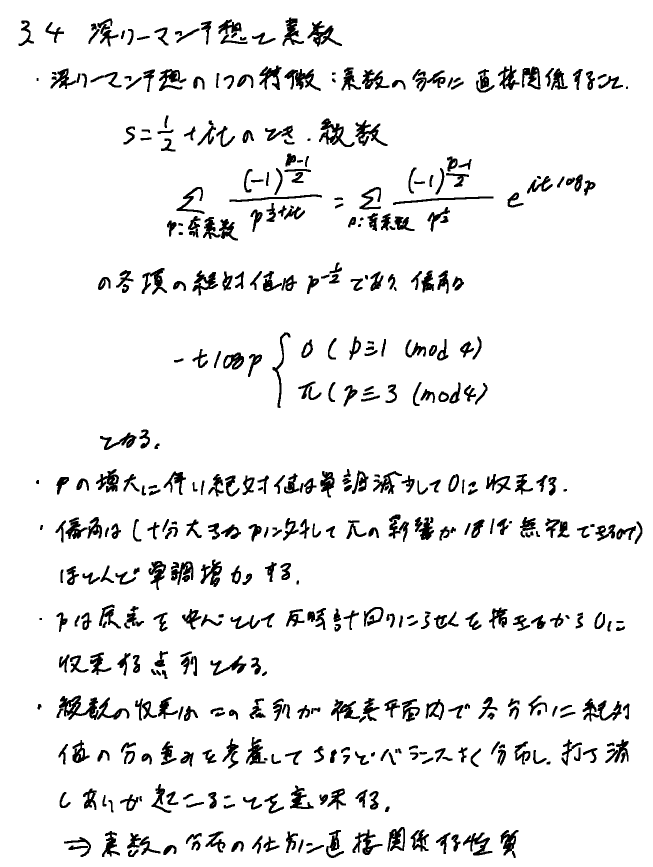 3.4 深リーマン予想と素数
・深リーマン予想の1つの特徴：素数の分布に直接関係すること.
s=1/2+itのとき. 級数
Σ_{p:奇素数} (-1)^{(p-1)/2} / p^{1/2+it} = Σ_{p:奇素数} (-1)^{(p-1)/2} / p^{1/2} e^{it log p}
の各項の絶対値は p^{-1/2} であり、偏角は
-t log p { 0 ( p≡1 (mod 4)
π ( p≡3 (mod 4)
となる.
・pの増大に伴い絶対値は単調減少して0に収束する.
・偏角は(十分大きなpに対してπの影響がほぼ無視できるので)
ほとんど単調増加する.
・pは原点を中心として反時計回りにらせんを描きながら0に
収束する点列となる.
・級数の収束はこの点列が複素平面内で各方向に絶対
値の分の重みを考慮してちょうどバランスよく分布し、打ち消
しあいが起こることを意味する.
⇒ 素数の分布の仕方に直接関係する性質